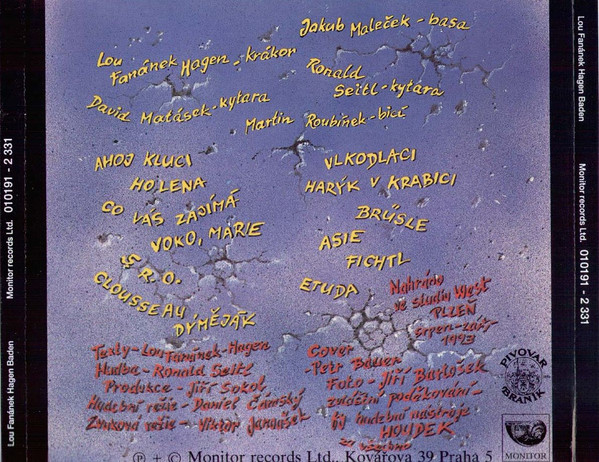 Lou Fanánek Hagen Baden
Monitor records Ltd. 010191 - 2 331
Lou
Fanánek Hagen - krákor
David Matásek - kytara
Jakub Maleček - basa
Ronald
Seitl - kytara
Martin Roubínek - bicí
AHOJ KLUCI
HOLENA
CO VÁS ZAJÍMÁ
VOKO, MARIE
S.R.O.
CLOUSSEAU
DÝMĚJÁK
VLKODLACI
HARÝK V KRABICI
BRŮSLE
ASIE
FICHTL
ETUDA
Nahráno
ve studiu West
PLZEŇ
srpen - září
1993
Texty - Lou Fanánek - Hagen
Hudba - Ronald Seitl
Produkce - Jiří Sokol
Hudební režie - Daniel
Zvuková režie - Viktor
Cover
- Petr Bauer
Foto - Jiří Bartošek
zvláštní poděkování -
fy hudební nástroje
HOUDEK
PIVOVAR
BRANÍK
MONITOR
℗ + © Monitor records Ltd., Kovářova 39 Praha 5
Lou Fanánek Hagen Baden
Monitor records Ltd. 010191 - 2 331